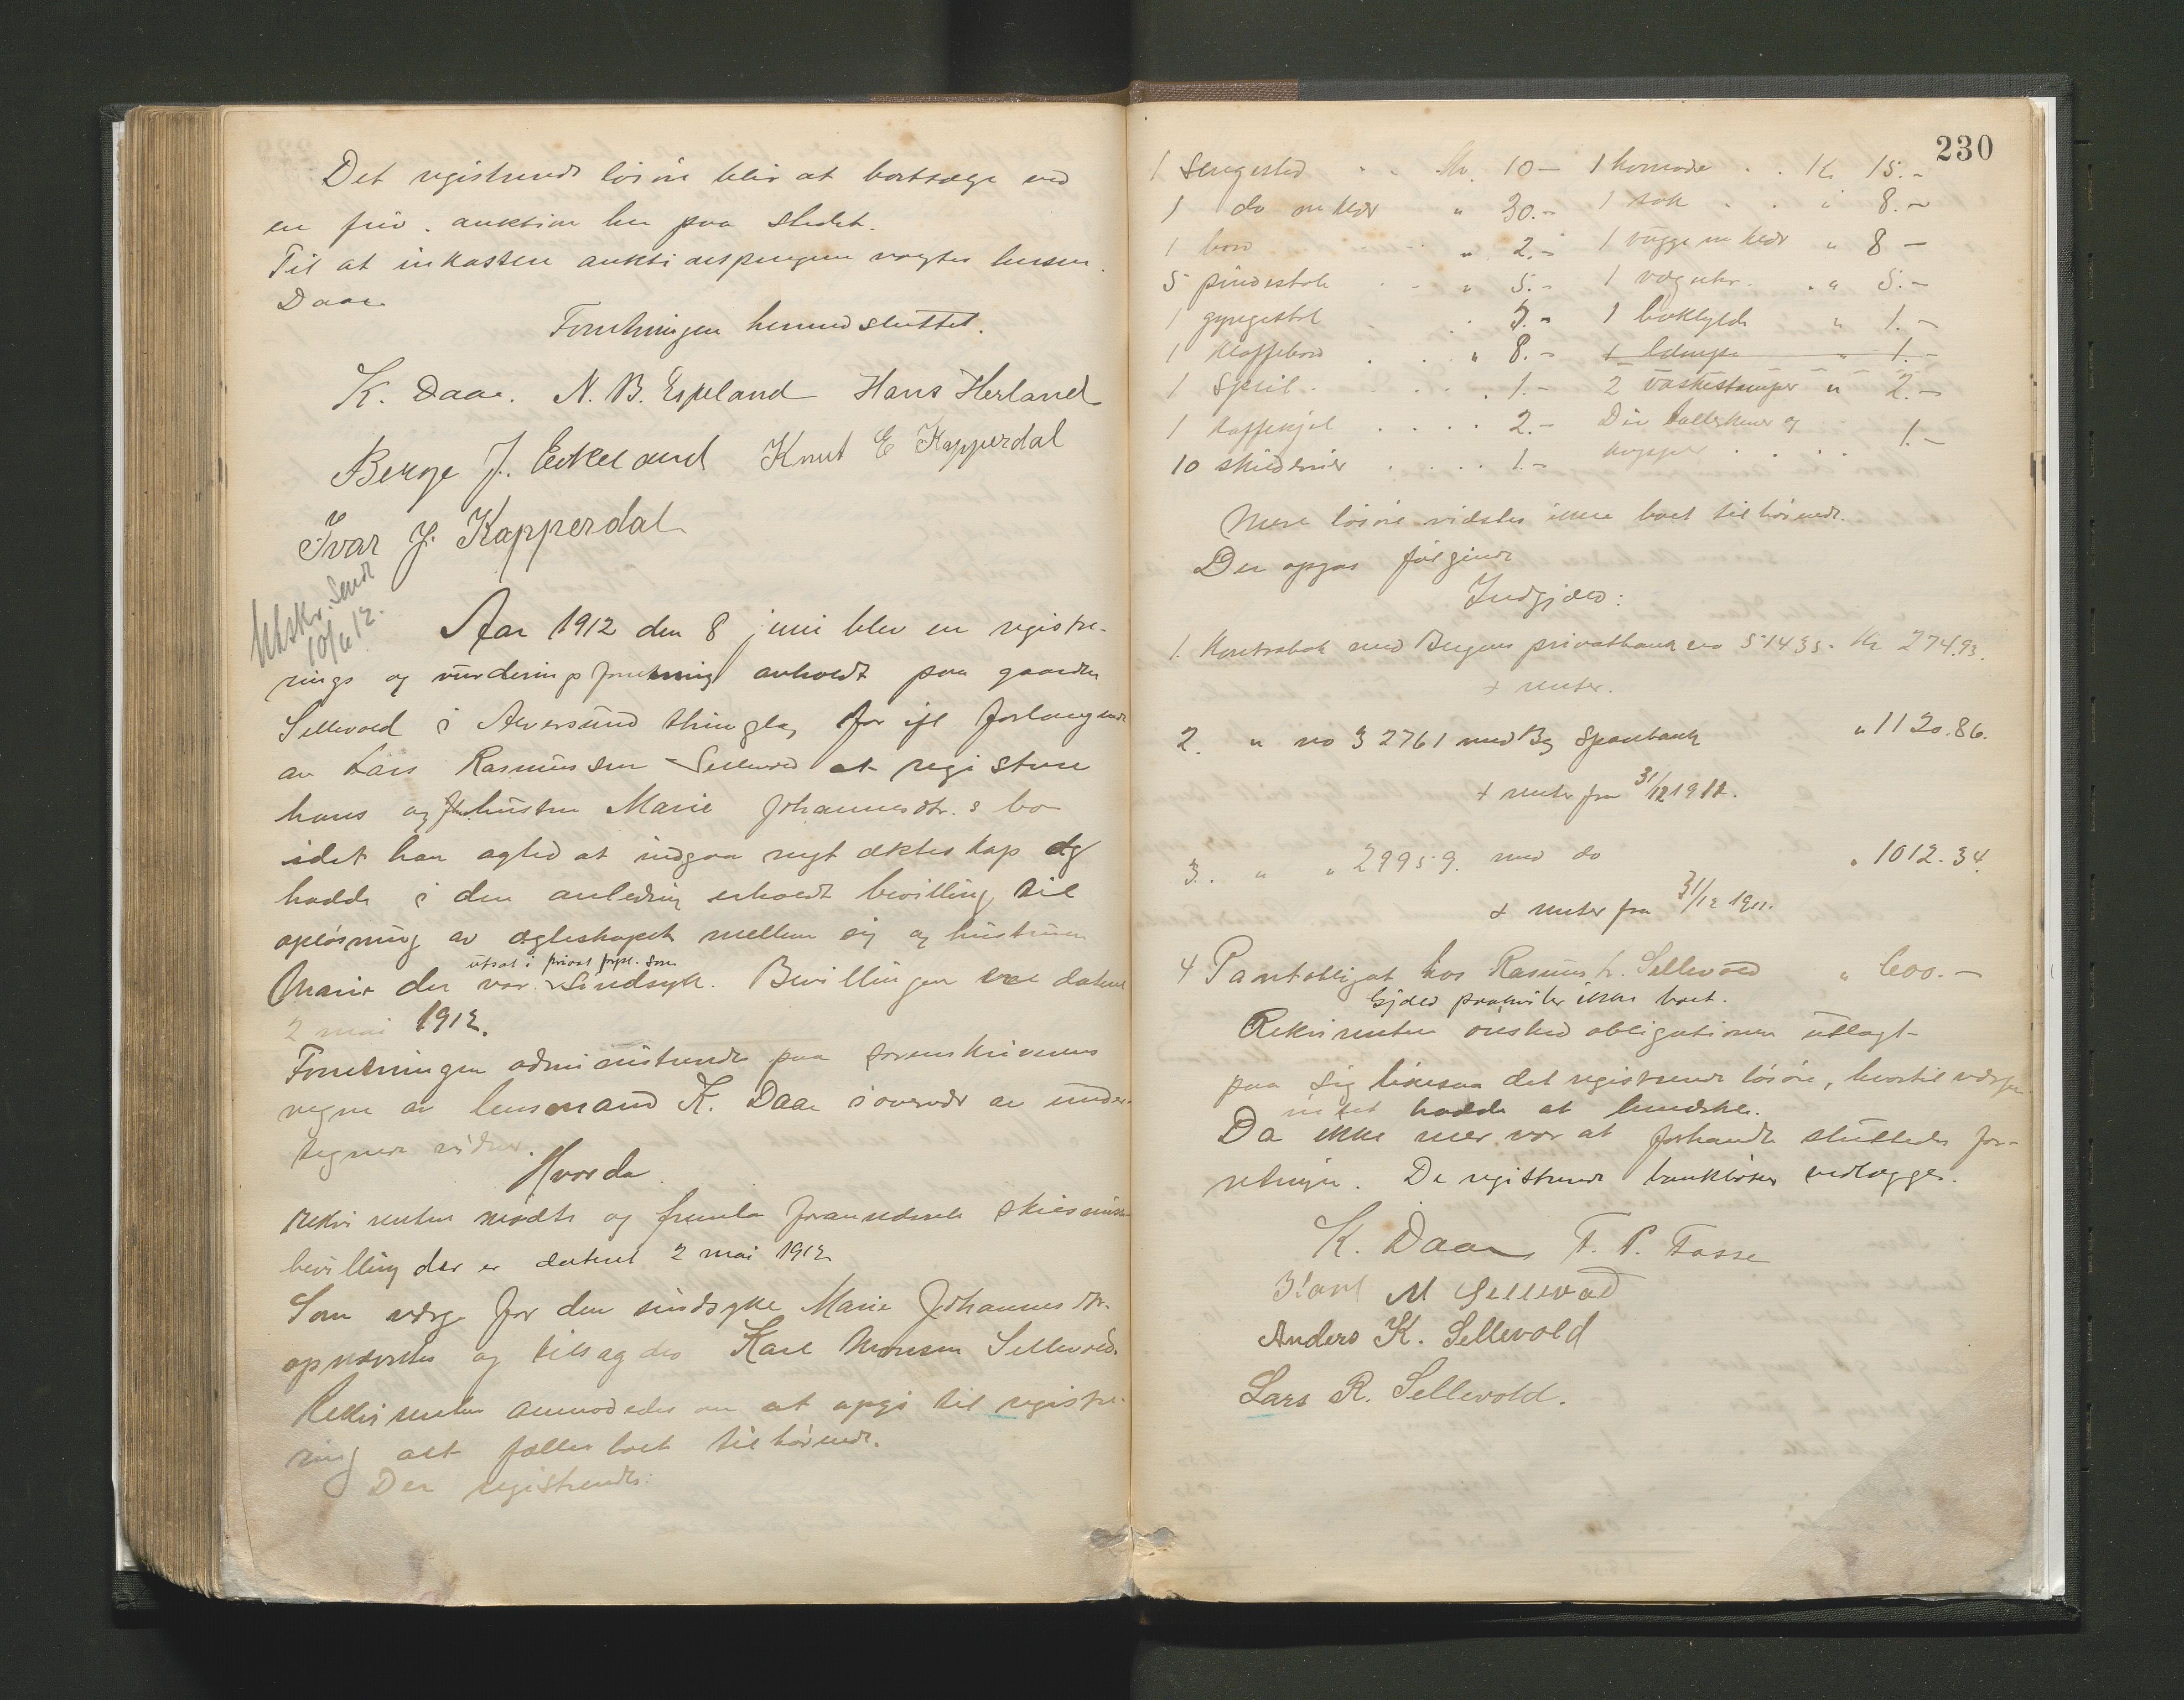 Det registrerede løsøre blir at bortsælge ved
en friv. auktion her paa stedet.
Til at inkassere auktionspengene valgtes lensm.
Daae
Forretningen hermed sluttet.
K. Daae. N. B. Espeland Hans Herland
Berge J. Eikeland Knut E Kapperdal
Ivar J. Kapperdal
Utskr. sendt
10/6 12.
Aar 1912 den 8 juni blev en registre-
rings og vurderingsforretning avholdt paa gaarden
Sellevold i Alversund thinglag for ifl forlangende
av Lars Rasmussen Sellevold at registrere
hans og hustru Marie Johannesdtr.s bo
idet han agted at indgaa nyt ekteskap og
hadde i den anledning erholdt bevilling til
opløsning av egteskapet mellem sig og hustruen
utsat i privat forpl. som
Marie der var sindsyk. Bevillingen var dateret
2 mai 1912.
Forretningen administreredes paa sorenskriverens
vegne av lensmand K. Daae i overvær av under-
tegnede vidner.
Hvorda
Rekvirenten mødte og fremla forannævnte skilsmisse
bevilling der er dateret 2 mai 1912
Som verge for den sindsyke Marie Johannesdtr.
opnævntes og tilsagdes Karl Monsen Sellevold.
Rekvirenten anmodedes om at opgi til registre-
ring alt fællesboet tilhørende.
Der registreredes:
230
1 Sengested . . Kr. 10 — 1 komode . . Kr 15.-
1 do m klær " 30.- 1 sok . . " 8.-
1 bord " 2.- 1 vugge m klær " 8 —
5 pindestole . . " 5.- 1 væguhr . . " 5.-
1 gyngestol . . 5.- 1 bokhylde " 1.-
1 klaffebord . . " 8.- 1 lampe " 1.-
1 Speil . . . 1.- 2 vaskestamper " 2.-
1 kaffekjel . . . . 2.- Div tallerkener og
10 skilderier . . . . 1.- kopper . . . . 1.-
Mere løsøre vidstes ikke boet tilhørende.
Der opgas følgende
Indgjæld:
1. Kontrabok med Bergens privatbank no 51435. Kr 274,93.
+ renter.
2. " no 32761 med Bg Sparebank " 1120.86.
+ renter fra 31/12 1911.
3. " " 29959. med do " 1012.34.
+ renter fra 31/12 1911.
4 Pantobligat hos Rasmus L. Sellevold " 600.-
Gjæld paahviler ikke boet.
Rekvirenten ønsked obligationen utlagt
paa sig likesaa det registrerede løsøre, hvortil vergen
intet hadde at bemerke.
Da ikke mer var at forhandle sluttedes for-
retningen. De registrerede bankbøker vedlægges.
K. Daae T. P. Fosse
Karl M Sellevold
Anders K. Sellevold
Lars R. Sellevold.